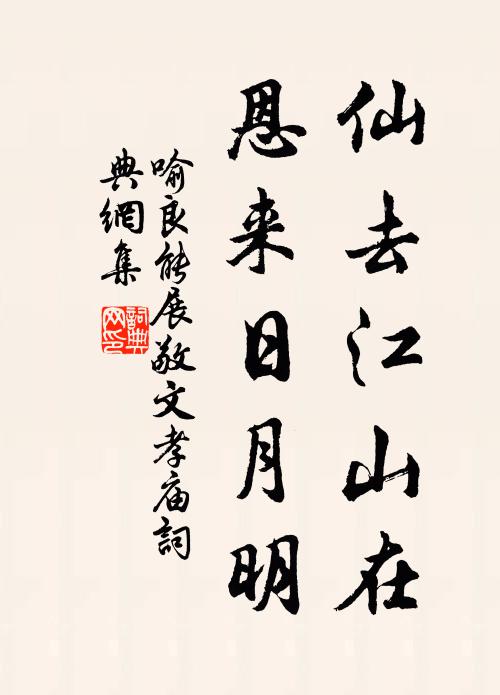 仙去江山在
恩来日月明
喻良能展敬文孝庙詞
典網集
詞典
网印